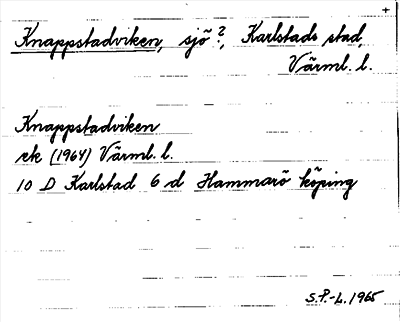 +
Knappstadviken, sjö?, Karlstads stad,
Värml. l.
Knappstadviken
ek (1964) Värml. l.
10 D Karlstad 6 d Hammarö köping
S.P.-L. 1965